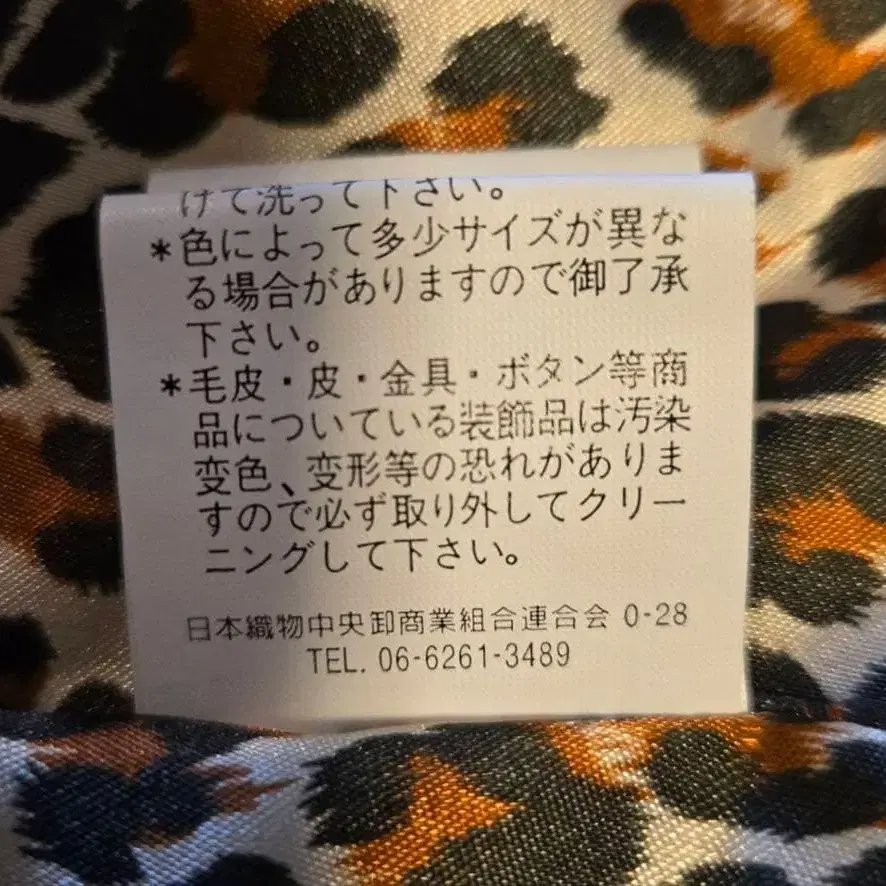 けて洗って下さい。
*色によって多少サイズが異な
る場合がありますので御了承
下さい。
*毛皮・皮・金具・ボタン等商
品についている装飾品は汚染
変色、変形等の恐れがありま
すので必ず取り外してクリー
ニングして下さい。
日本織物中央卸商業組合連合会 0-28
TEL. 06-6261-3489